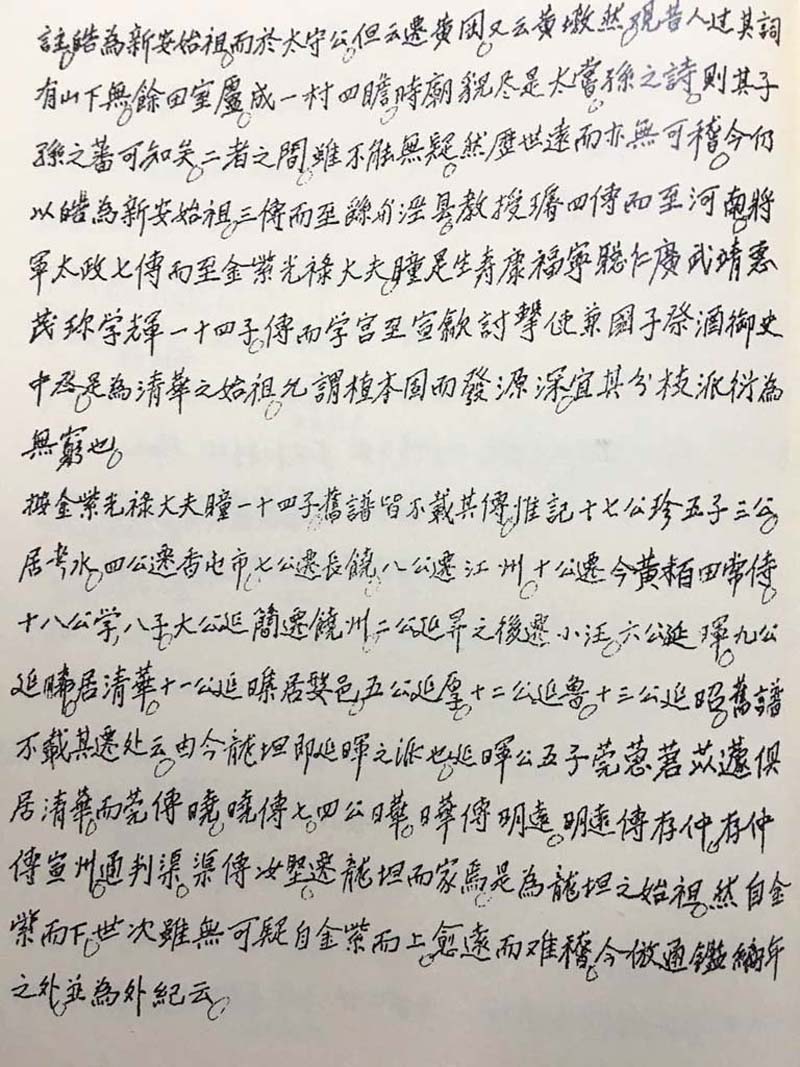 註皓為新安始祖而於太守公但云遷黃囤又云黃墩然覌昔人过其詞
有山下無餘田室廬成一村四瞻時廟貌尽是太嘗孫之詩。則其子
孫之蕃可知矣。二者之間。雖不能無疑。然歷世遠而亦無可稽。今仍
以皓為新安始祖。三傳而至 涇县教授璿。四傳而至河南將
軍太政七傳而至金紫光祿大夫瞳是生寿康福寧聡仁廣武靖惠
茂珎学輝一十四子。傳而学宮至宣歙討擊使兼國子祭酒御史
中丞。是為清華之始祖。允謂植本固而發源深。宜其分枝派衍為
無窮也。
按金紫光祿大夫瞳一十四子。舊譜皆不載其傳。惟記十七公珍五子三公。
居考水。四公遷香屯市。七公遷長饒。八公遷江州。十公遷今黃栢田常侍
十八公学。八子。大公延簡遷饒州。二公延昇之後遷小汪。六公延琿。九公
延晞。居清華。十一公延㬥居婺邑。五公延厚。十二公延魯。十三公延昭。舊譜
不載其遷处云。由今龍坦即延暉之派也。延暉公五子莞蒽茗苡蘧俱
居清華。而莞傳曉。曉傳七。四公曄。日華傳明遠。明遠傳存仲。存仲
傳宣州通判渠。渠傳汝堅。遷龍坦而家焉。是為龍坦之始祖。然自金
紫而下。世次雖無可疑。自金紫而上。愈遠而难稽。今倣通鑑編年
之外。並為外紀云。